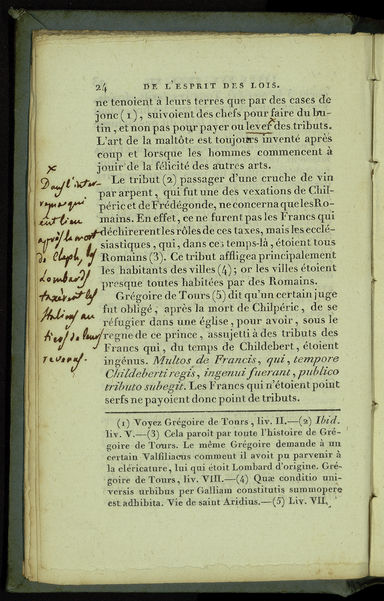 24 DE L'ESPRIT DES LOIS.
ne tenoient à leurs terres que par des cases de
jonc (1), suivoient des chefs pour faire du bu-
tin, et non pas pour payer ou lever des tributs.
L'art de la maltôte est toujours inventé après
coup et lorsque les hommes commencent à
jouir de la félicité des autres arts.
Le tribut (2) passager d'une cruche de vin
par arpent, qui fut une des vexations de Chil-
péric et de Frédégonde, ne concerna que les Ro-
mains. En effet, ce ne furent pas les Francs qui
déchirerent les rôles de ces taxes, mais les ecclé-
siastiques, qui, dans ces temps-là, étoient tous
Romains (3). Ce tribut affligea principalement
les habitants des villes (4); or les villes étoient
presque toutes habitées par des Romains.
Grégoire de Tours (5) dit qu'un certain juge
fut obligé, après la mort de Chilpéric, de se
réfugier dans une église, pour avoir, sous le
regne de ce prince, assujetti à des tributs des
Francs qui, du temps de Childebert, étoient
ingénus. Multos de Francis, qui, tempore
Childeberti regis, ingenui fuerant, publico
tributo subegit. Les Francs qui n'étoient point
serfs ne payoient donc point de tributs.
x
Dans l'inter-
regne qui
eut lieu
après la mort
de Cleph, les
Lombards
taxèrent les
Italiens au
tiers de leurs
revenus.
(1) Voyez Grégoire de Tours, liv. II.—(2) Ibid.
liv. V.—(3) Cela paroît par toute l'histoire de Gré-
goire de Tours. Le même Grégoire demande à un
certain Valfiliacus comment il avoit pu parvenir à
la cléricature, lui qui étoit Lombard d'origine. Gré-
goire de Tours, liv. VIII.—(4) Quæ conditio uni-
versis urbibus per Galliam constitutis summopere
est adhibita. Vie de saint Aridius.—(5) Liv. VII.